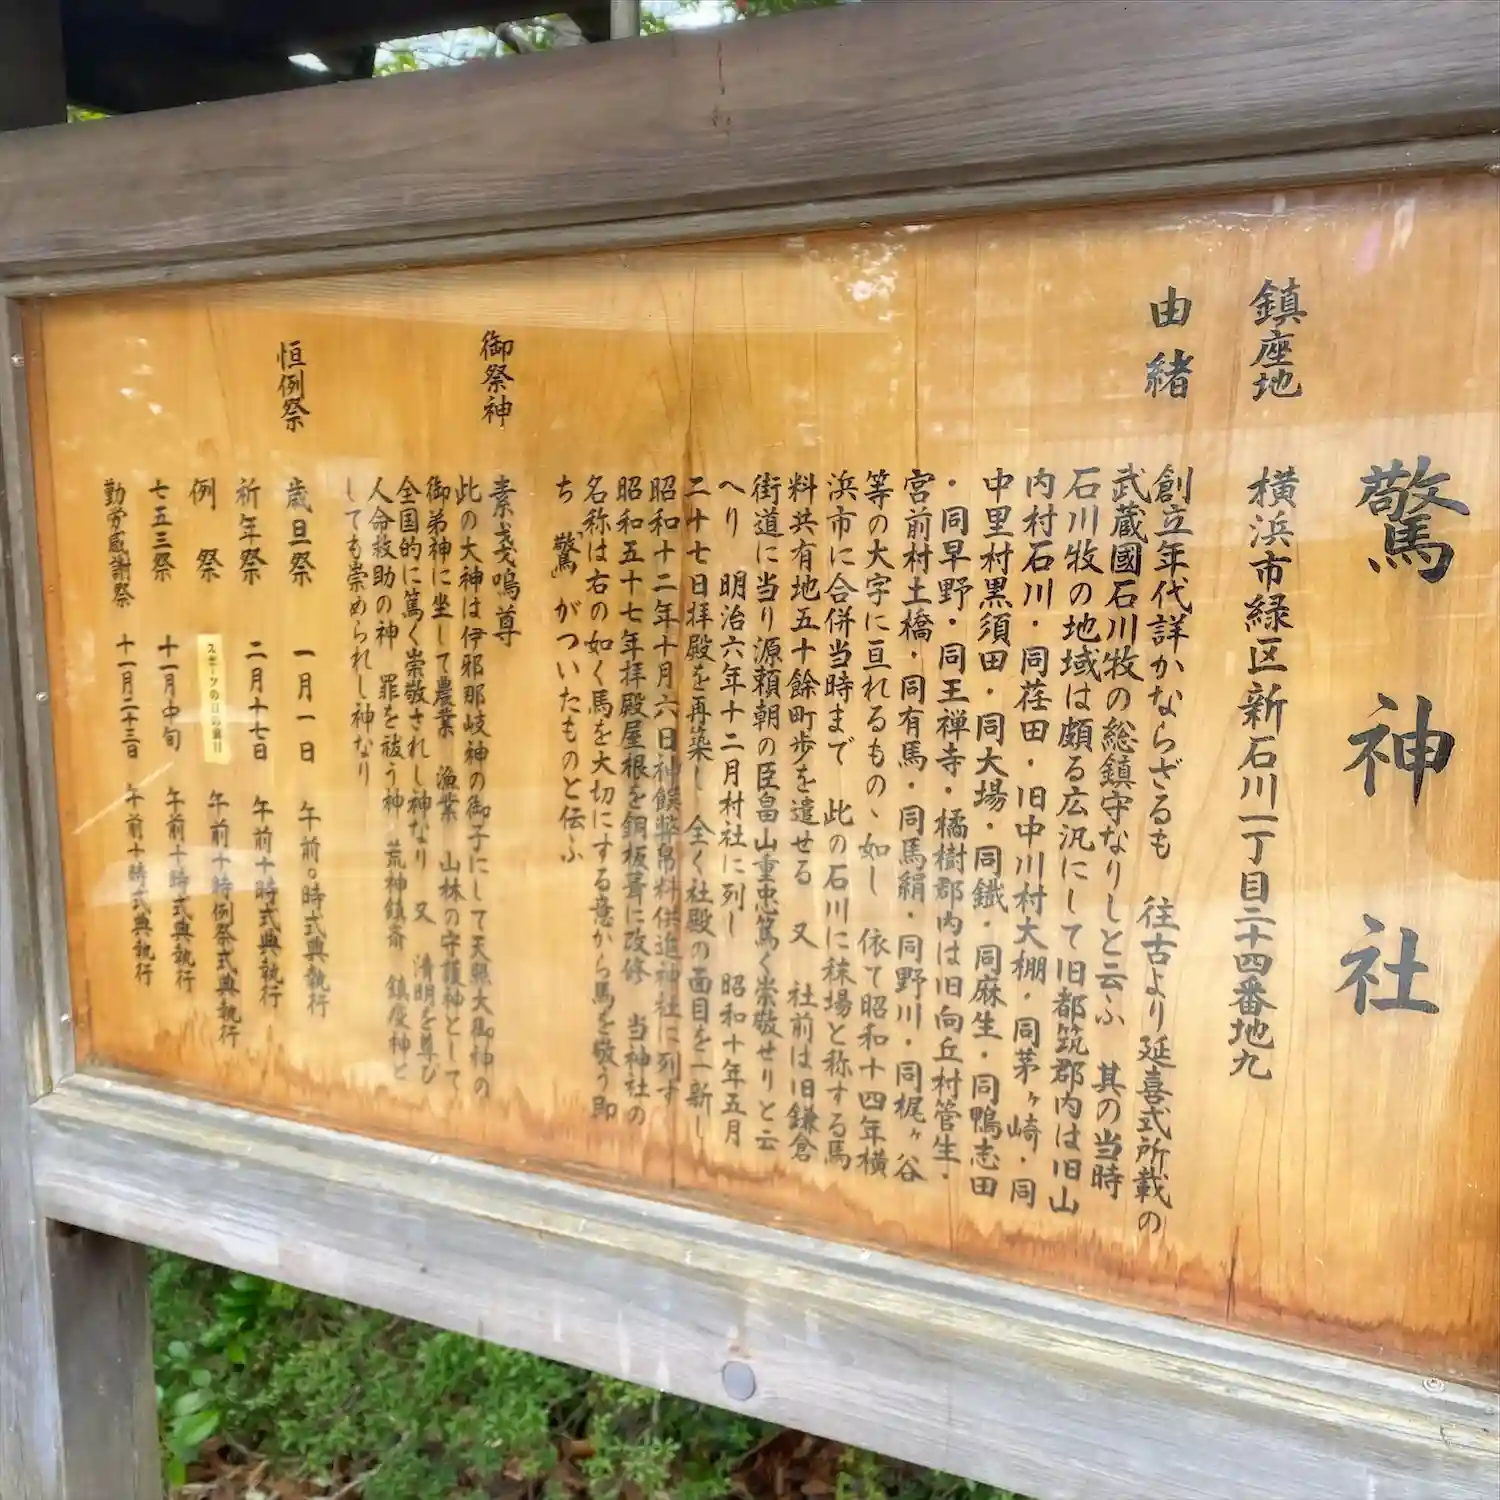 驚神社
鎮座地 横浜市緑区新石川一丁目二十四番地九
由緒 創立年代詳かならざるも 往古より延喜式所載の
武蔵國石川牧の総鎮守なりしと云ふ 其の当時
石川牧の地域は頗る広汎にして旧都筑郡内は旧山
内村石川・同荏田・旧中川村大棚・同茅ヶ崎・同
中里村黒須田・同大場・同鐡・同麻生・同鴨志田
・同早野・同王禅寺・橘樹郡内は旧向丘村管生・
宮前村土橋・同有馬・同馬絹・同野川・同梶ヶ谷
等の大字に亘れるものゝ如し 依て昭和十四年横
浜市に合併当時まで 此の石川に秣場と称する馬
料共有地五十餘町歩を遺せる 又 社前は旧鎌倉
街道に当り源頼朝の臣畠山重忠篤く崇敬せりと云
へり 明治六年十二月村社に列し 昭和十年五月
二十七日拝殿を再築し 全く社殿の面目を一新し
昭和十二年十月六日神饌幣帛料供進神社に列す
昭和五十七年拝殿屋根を銅板葺に改修 当神社の
名称は右の如く馬を大切にする意から馬を敬う即
ち「驚」がついたものと伝ふ
御祭神 素戔嗚尊
此の大神は伊邪那岐神の御子にして天照大御神の
御弟神に坐して農業 漁業 山林の守護神として
全国的に篤く崇敬されし神なり 又 清明を尊び
人命救助の神 罪を祓う神 荒神鎮斎 鎮疫神と
しても崇められし神なり
恒例祭 歳旦祭 一月一日 午前〇時式典執行
祈年祭 二月十七日 午前十時式典執行
例祭 スポーツの日 午前十時例祭式典執行
七五三祭 十一月中旬 午前十時式典執行
勤労感謝祭 十一月二十三日 午前十時式典執行